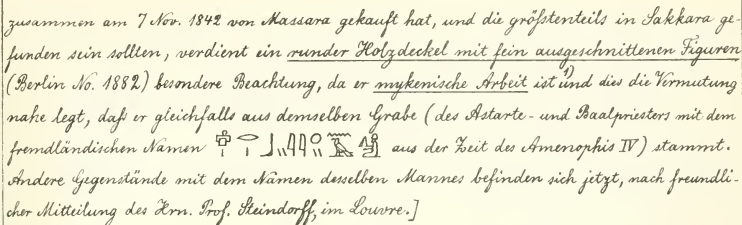 zusammen am 7 Nov. 1842 von Massara gekauft hat, und die größtenteils in Sakkara ge-
funden sein sollten, verdient ein runder Holzdeckel mit fein ausgeschnittenen Figuren
(Berlin No. 1882) besondere Beachtung, da er mykenische Arbeit ist ¹⁾ und dies die Vermutung
nahe legt, daß er gleichfalls aus demselben Grabe (des Astarte- und Baalpriesters mit dem
fremdländischen Namen aus der Zeit des Amenophis IV) stammt.
Andere Gegenstände mit dem Namen desselben Mannes befinden sich jetzt, nach freundli-
cher Mitteilung des Hrn. Prof. Steindorff, im Louvre.]